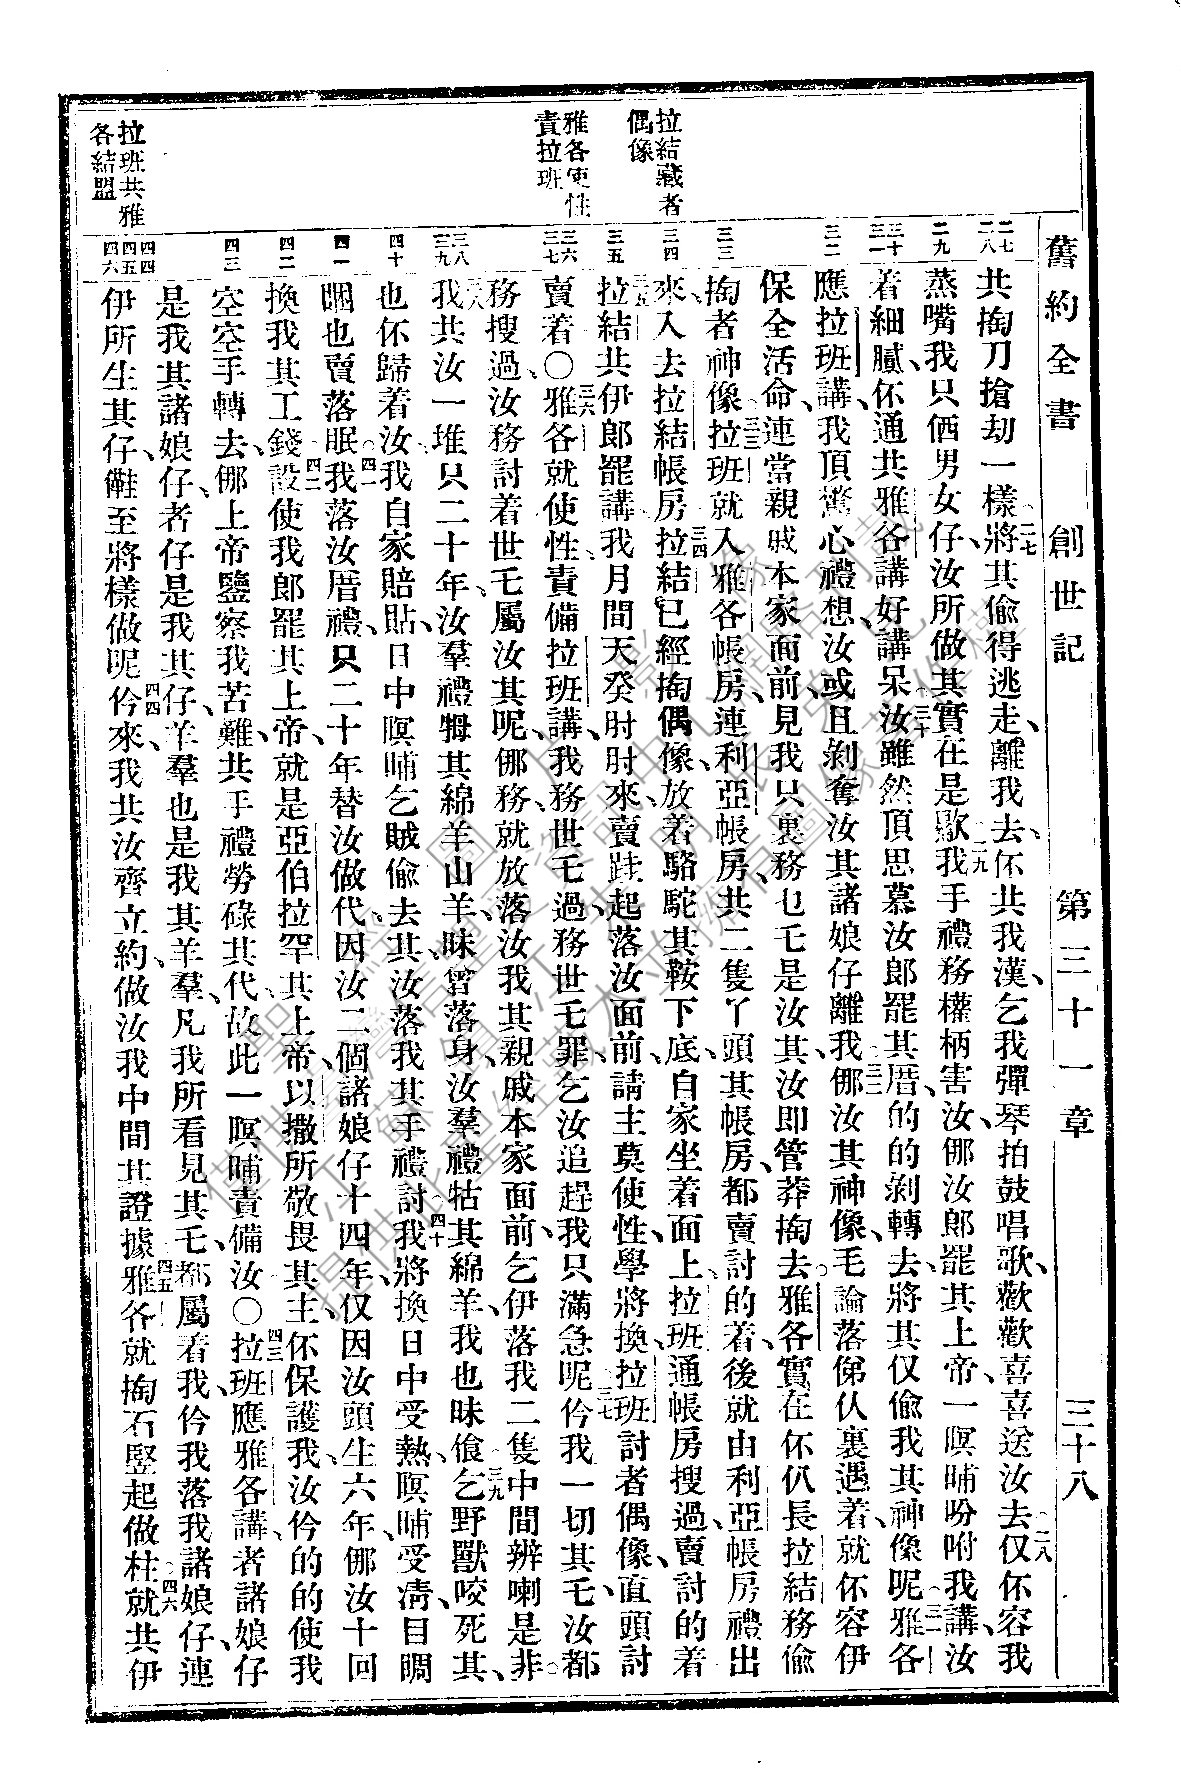 舊約全書 創世記 第三十一章 三十八
拉結藏者
偶像
雅各使性
責拉班
拉班共雅
各結盟
共掏刀搶劫一樣將其偷得逃走離我去伓共我漢乞我彈琴拍鼓唱歌歡歡喜喜送汝去仅伓容我
蒸嘴我只価男女仔汝所做其實在是歇我手禮務權柄害汝挪汝郎罷其上帝一暝晡吩咐我講汝
着細膩伓通共雅各講好講呆汝雖然頂思慕汝郎罷其厝的的剝轉去將其仅偷我其神像呢雅各
應拉班講我頂驚心禮想汝或且剝奪汝其諸娘仔離我挪汝其神像毛論落俤仈裏遇着就伓容伊
保全活命連當親戚本家面前見我只裏務乜乇是汝其汝即管莽掏去雅各實在伓仈長拉結務偷
掏者神像拉班就入雅各帳房連利亞帳房共二隻丫頭其帳房都賣討的着後就由利亞帳房禮出
來入去拉結帳房拉結已經掏偶像放着駱駝其鞍下底自家坐着面上拉班通帳房搜過賣討的着
拉結共伊郎罷講我月間天癸肘肘來賣跬起落汝面前請主莫使性學將換拉班討者偶像直頭討
賣着〇雅各就使性責備拉班講我務世乇過務世乇罪乞汝追趕我只滿急呢仱我一切其乇汝都
務搜過汝務討着世乇屬汝其呢挪務就放落汝我其親戚本家面前乞伊落我二隻中間辨喇是非
我共汝一堆只二十年汝羣禮𤘅其綿羊山羊昧曾落身汝羣禮牯其綿羊我也昧飧乞野獸咬死其
也伓歸着汝我自家賠貼日中暝晡乞賊偷去其汝落我其手禮討我將換日中受熱暝晡受凊目睭
睏也賣落眠我落汝厝禮只二十年替汝做代因汝二個諸娘仔十四年仅因汝頭生六年挪汝十回
換我其工錢設使我郎罷其上帝就是亞伯拉罕其上帝以撒所敬畏其主伓保護我汝仱的的使我
空空手轉去挪上帝鑒察我苦難共手禮勞碌其代故此一暝晡責備汝〇拉班應雅各講者諸娘仔
是我其諸娘仔者仔是我其仔羊羣也是我其羊羣凡我所看見其乇都屬着我仱我落我諸娘仔連
伊所生其仔儺至將樣做呢仱來我共汝齊立約做汝我中間其證據雅各就掏石竪起做柱就共伊